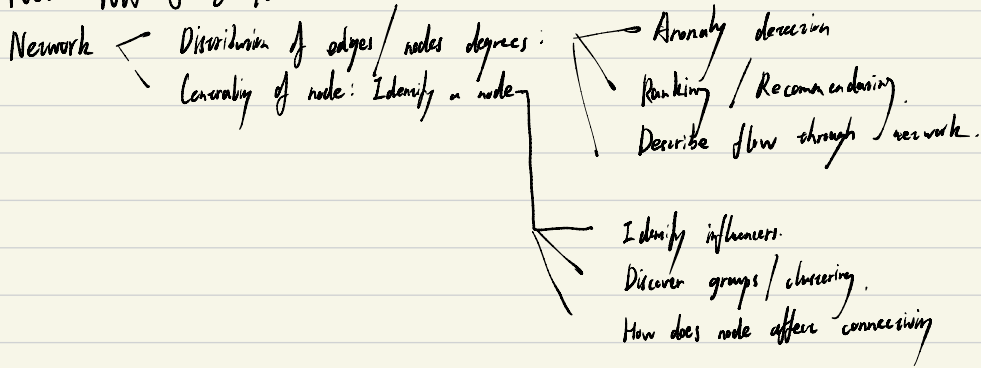 Network
Distribution of edges / nodes degrees :
Centrality of node : Identify a node
Anomaly detection
Ranking / Recommendating.
Describe flow through network.
Identify influencers.
Discover groups / clustering.
How does node affect connectivity